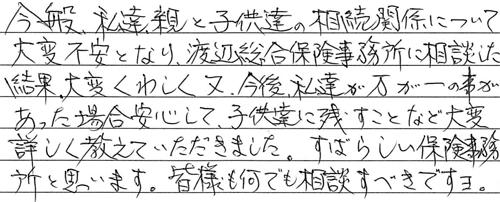 今般、私達、親と子供達の相続関係について
大変不安となり、渡辺総合保険事務所に相談した
結果、大変くわしく又、今後、私達が万が一の事が
あった場合安心して、子供達に残すことなど大変、
詳しく教えていただきました。すばらしい保険事務
所と思います。皆様も何でも相談すべきですヨ。